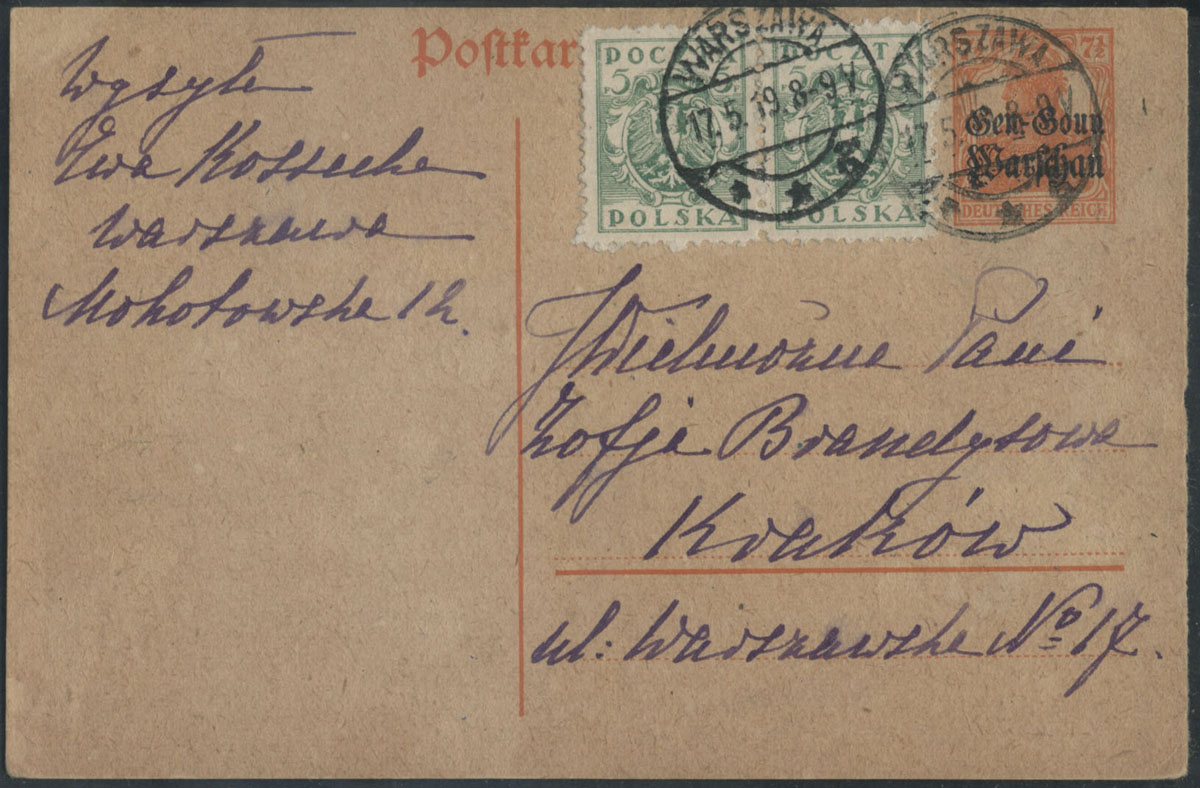 Postkar
7½
Gen.-Gouv.
Warschau
DEUTSCHES REICH
POCZTA
5 5
POLSKA
POCZTA
5
POLSKA
WARSZAWA
17.5.19.8-9V
WARSZAWA
17.5. 8-9V
Wysyła
Ewa
Warszawa
Mokotowska
Wielmożna Pani
Zofja Brandysowa
Kraków
ul: Warszawska No 17.